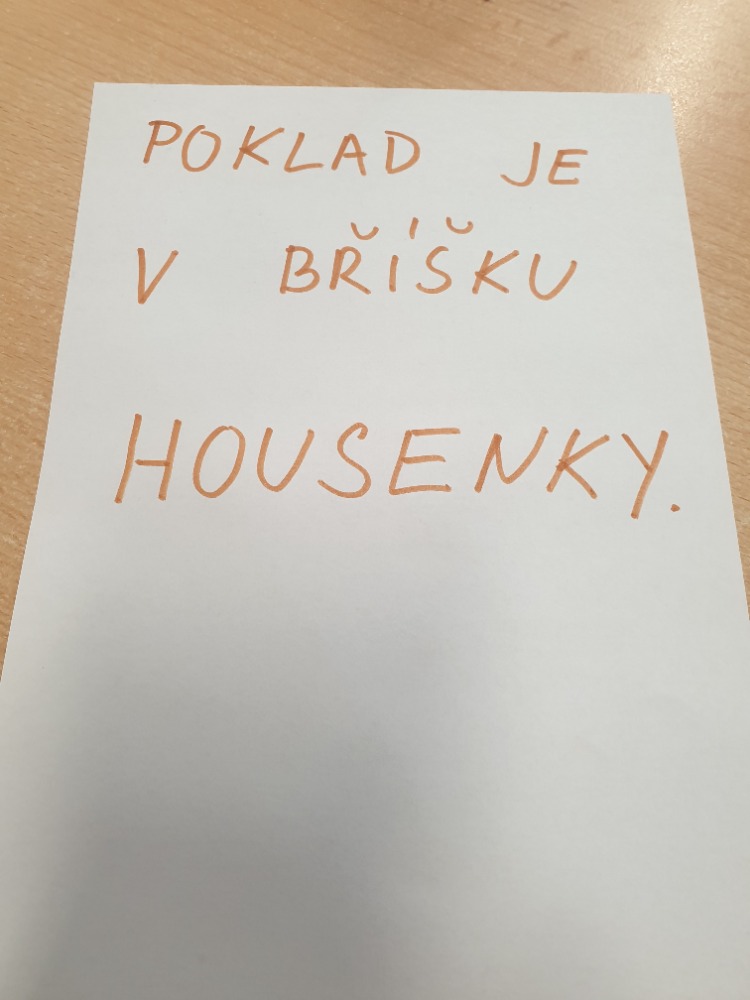 POKLAD JE
V BŘÍŠKU
HOUSENKY.